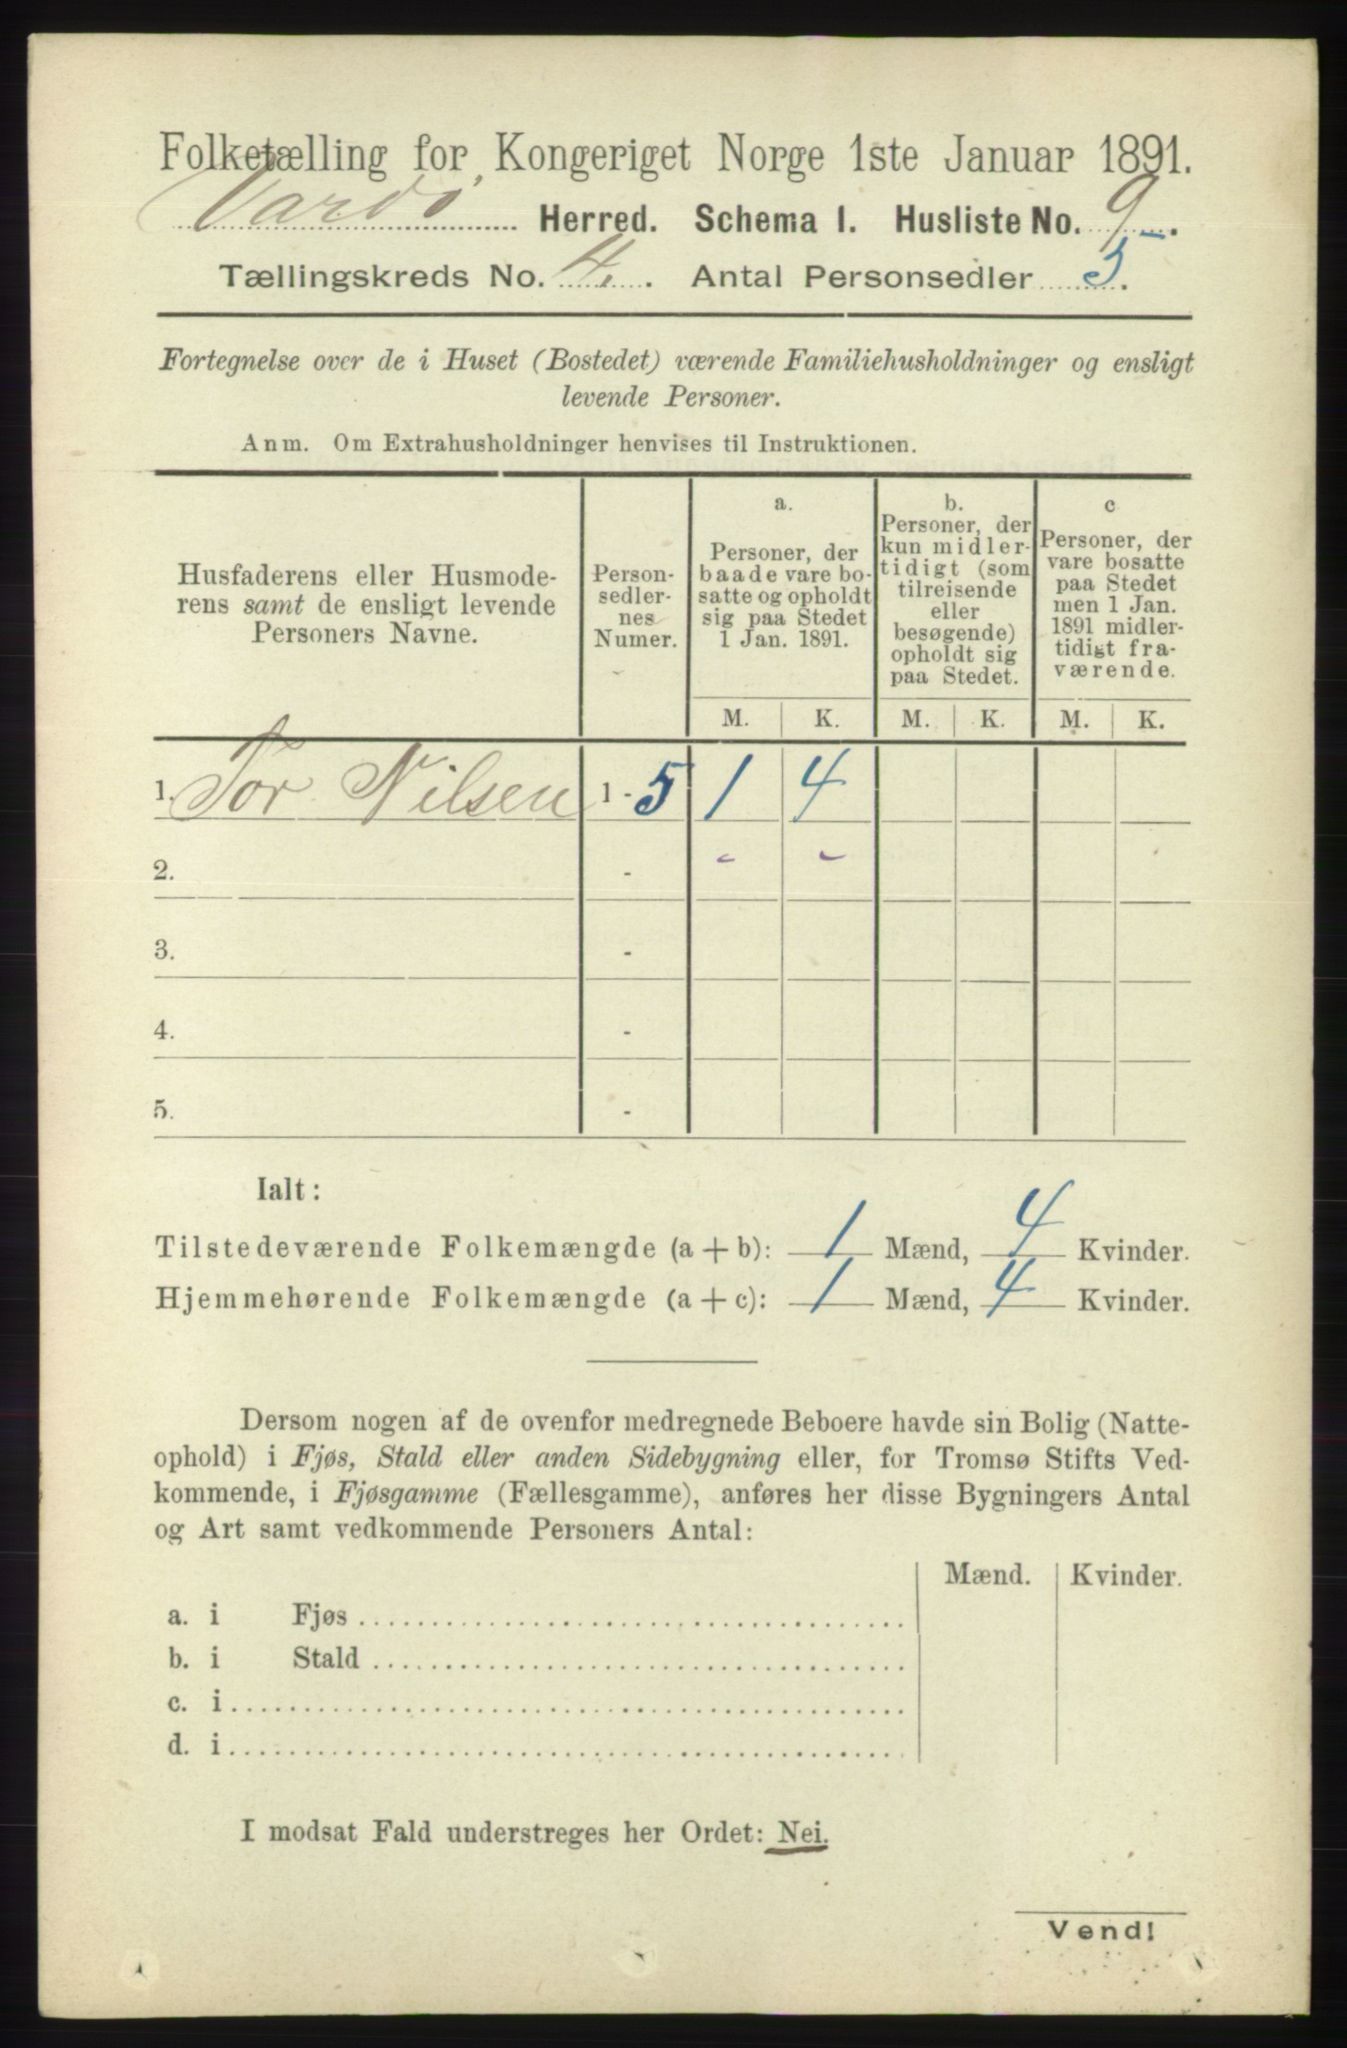 Folketælling for Kongeriget Norge 1ste Januar 1891.
Vardø Herred. Schema I. Husliste No. 9.
Tællingskreds No. 4. Antal Personsedler 5.
Fortegnelse over de i Huset (Bostedet) værende Familiehusholdninger og ensligt
levende Personer.
Anm. Om Extrahusholdninger henvises til Instruktionen.
Husfaderens eller Husmode-
rens samt de ensligt levende
Personers Navne.
Person-
sedler-
nes
Numer.
a.
Personer, der
baade vare bo-
satte og opholdt
sig paa Stedet
1 Jan. 1891.
b.
Personer, der
kun midler-
tidigt (som
tilreisende
eller
besøgende)
opholdt sig
paa Stedet.
c
Personer, der
vare bosatte
paa Stedet
men 1 Jan.
1891 midler-
tidigt fra-
værende.
M. K. M. K. M. K.
1. Tor Nilsen 1 - 5 1 4
2. - - -
3. -
4. -
5. -
Ialt:
Tilstedeværende Folkemængde (a + b): 1 Mænd, 4 Kvinder.
Hjemmehørende Folkemængde (a + c): 1 Mænd, 4 Kvinder.
Dersom nogen af de ovenfor medregnede Beboere havde sin Bolig (Natte-
ophold) i Fjøs, Stald eller anden Sidebygning eller, for Tromsø Stifts Ved-
kommende, i Fjøsgamme (Fællesgamme), anføres her disse Bygningers Antal
og Art samt vedkommende Personers Antal:
Mænd. Kvinder.
a. i Fjøs
b. i Stald
c. i
d. i
I modsat Fald understreges her Ordet: Nei.
Vend!